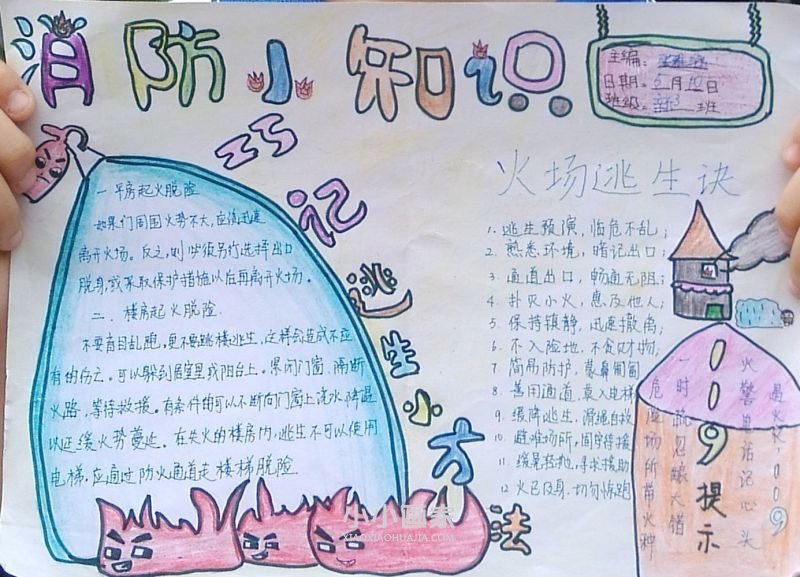 消防小知识
主编:
日期:6月10日
班级: 班
巧记逃生小方法
一.平房起火脱险
如果门周围火势不大,应该迅速
离开火场。反之,则必须另行选择出口
脱身,或采取保护措施以后再离开火场。
二、楼房起火脱险.
不要盲目乱跑,更不要跳楼逃生,这样会造成不应
有的伤亡。可以躲到居室里或阳台上。紧闭门窗,隔断
火路,等待救援。有条件的可以不断向门窗上浇水降温
以延缓火势蔓延。在失火的楼房内,逃生不可以使用
电梯,应通过防火通道走楼梯脱险.
火场逃生诀
1.逃生预演,临危不乱;
2.熟悉环境,暗记出口;
3.通道出口,畅通无阻;
4.扑灭小火,惠及他人;
5.保持镇静,迅速撤离;
6.不入险地,不贪财物;
7.简易防护,蒙鼻匍匐
8.善用通道,莫入电梯
9.缓降逃生,滑绳自救
10.避难场所,固守待援
11.缓晃轻抛,寻求援助
12.火已及身,切勿惊跑
遇火灾,119
火警电话记心头
119提示
一时疏忽酿大错
危险场所带火种
小小画家
XIAOXIAOHUAJIA.COM